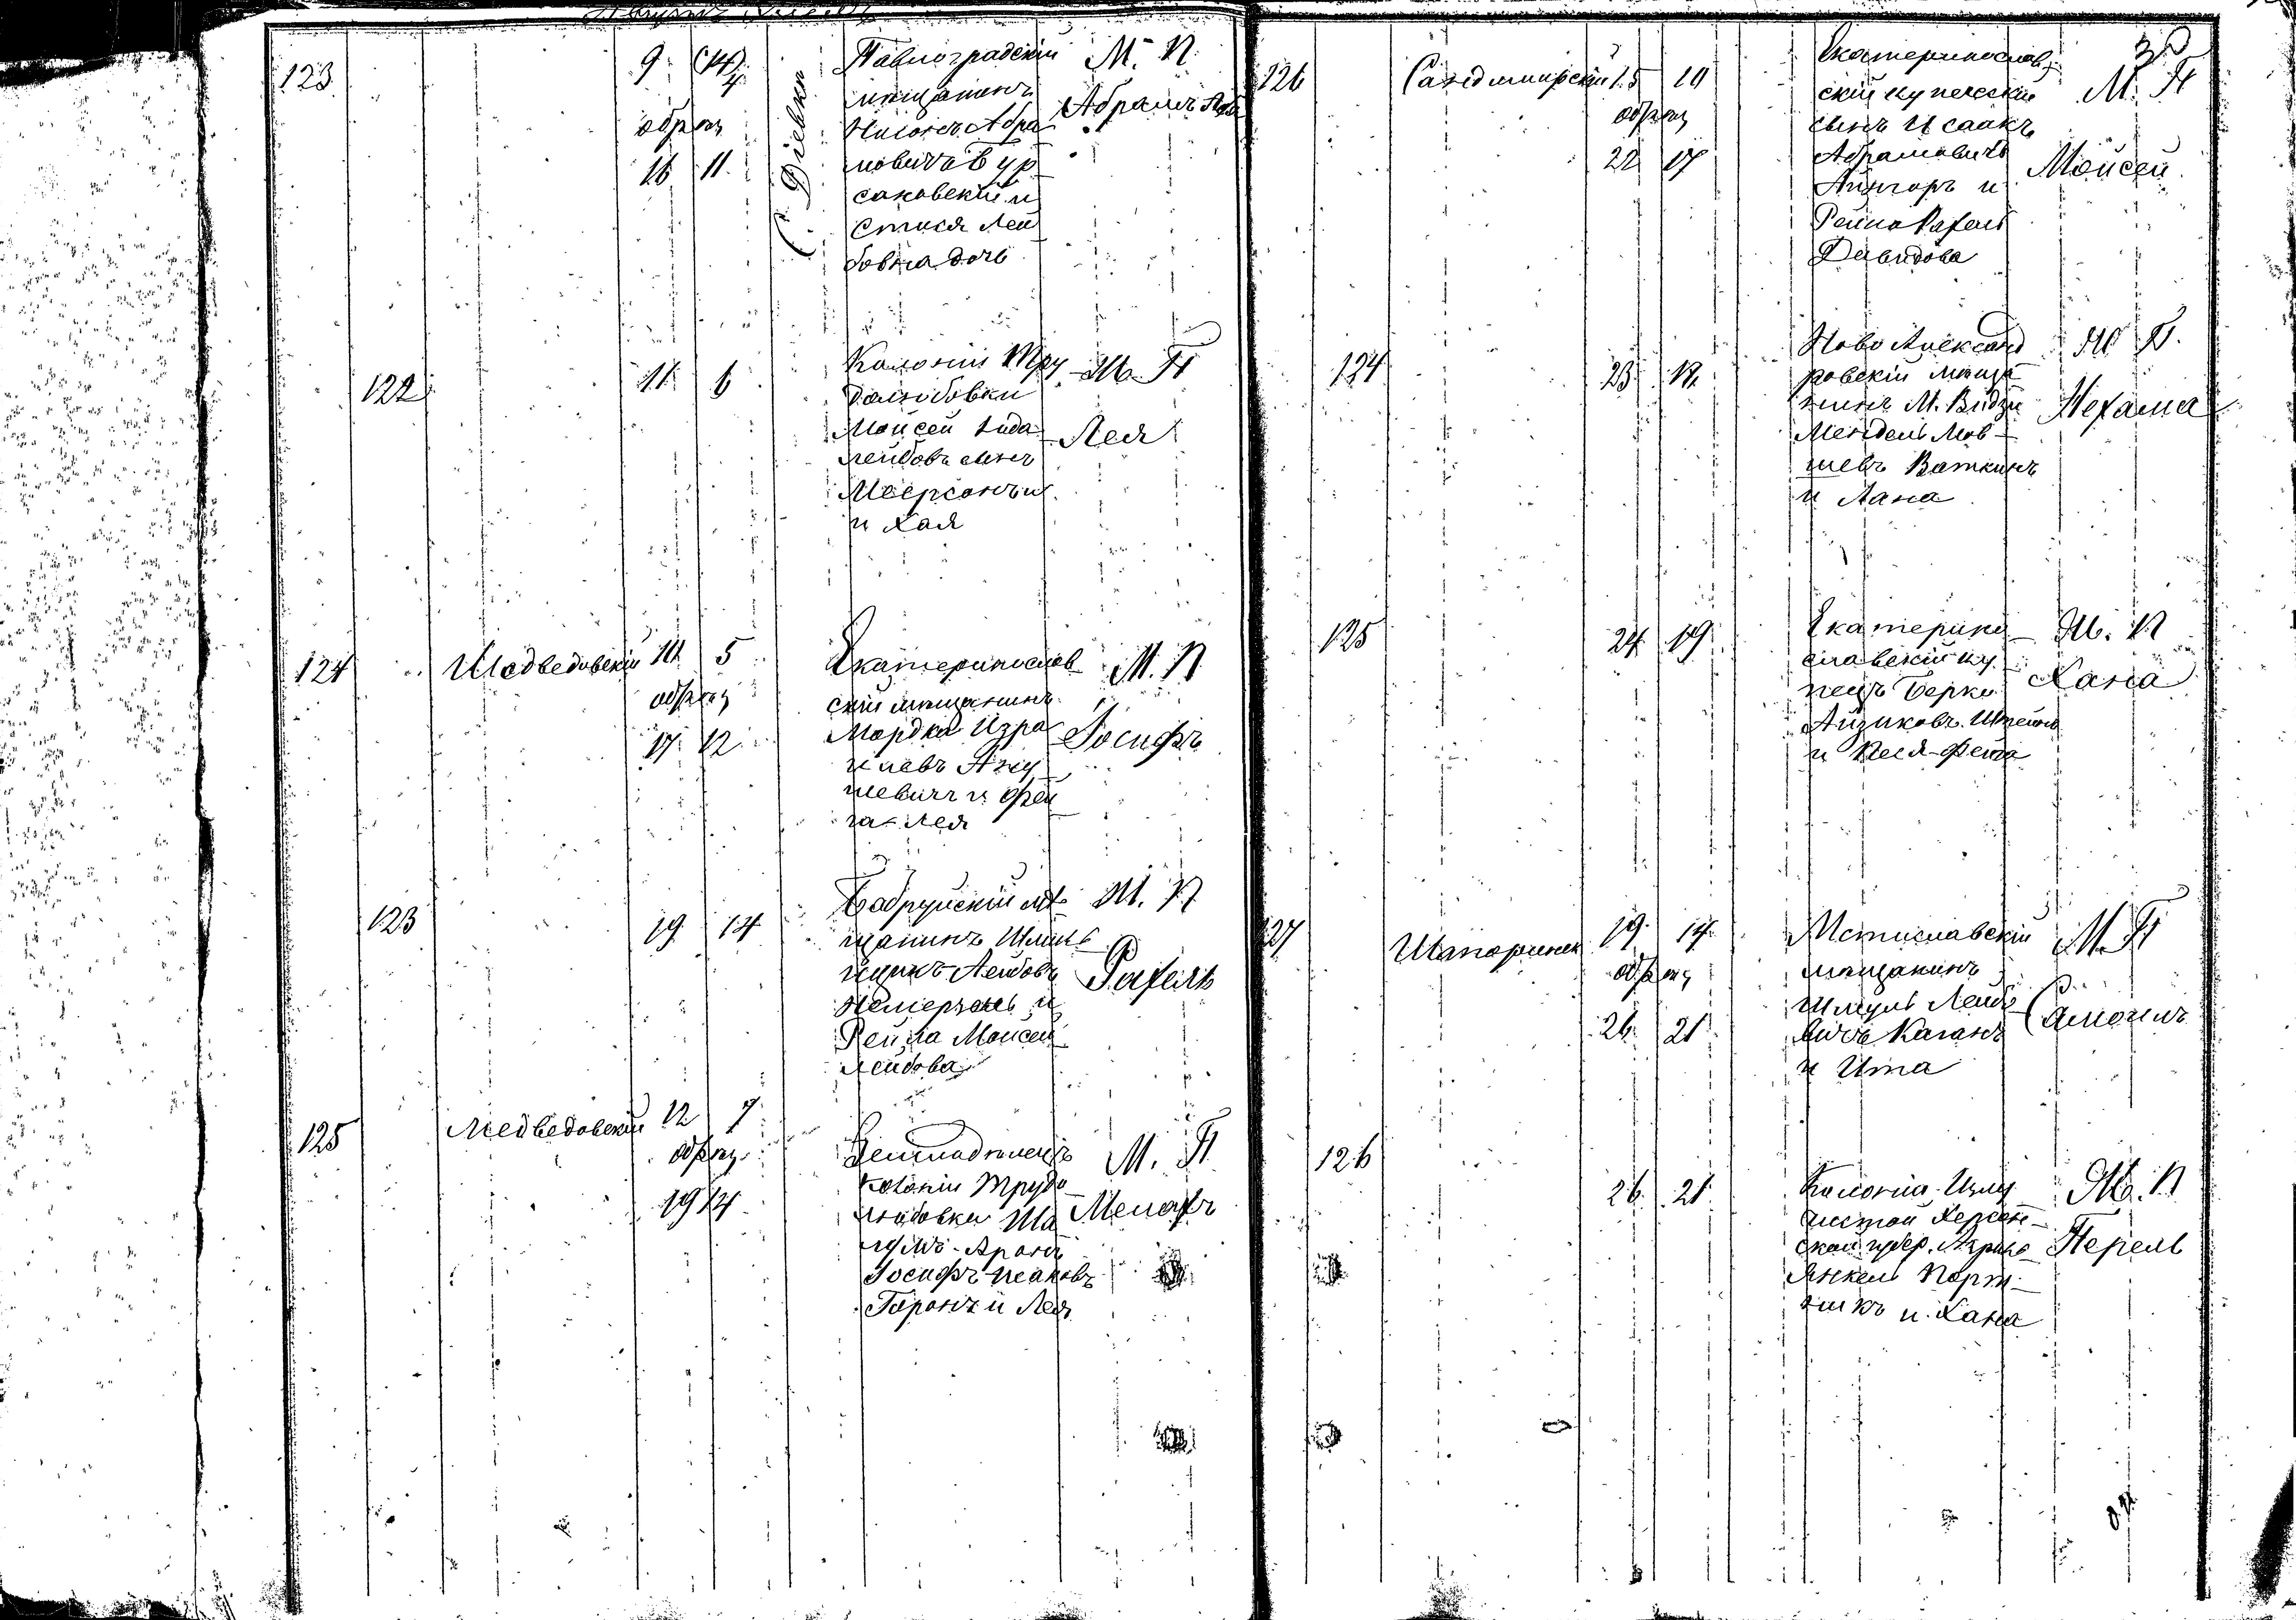 123
9
обрѣз
16 11
С. Діевки
Павлоградскій
мѣщанинъ
Нисонъ Абра
мовичъ Бур
саковскій и
Стися Лей
бовна дочь
М. П.
Абрамъ
122
11 6
Колоніи Тру
долюбовки
Мойсей Іида
лейбовъ сынъ
Меерсонъ
и Хая
М. П
Лея
124
Медведовскій
10 5
обрѣз
17 12
Екатеринослав
скій мѣщанинъ
Мордка Изра
илевъ
и Фей
га-Лея
М. П
Іосифъ
123
19 14
Бобруйскій мѣ
щанинъ
Ицикъ Лейбовъ
и
Рейза Мойсей
лейбова
М. П
Рахель
125
Медведовскій
12 7
обрѣз
19 14
Колоніи Трудо
любовки
Аронъ
Іосифъ-Исаковъ
Горонъ и Лея
М. П
126
Сандомирскій
15 10
обрѣз
22 17
Екатеринослав
скій купеческій
сынъ Исаакъ
Абрамовичъ
Айзгоръ и
Рейна Рахель
Давидова
М. П
Мойсей
124
23 18
Ново Александ
ровскій мѣща
нинъ М. Видзи
Мендель Мов
шевъ Ваткинъ
и Хана
М П.
Нехама
125
24 19
Екатерино
славскій ку
пецъ Берко
Айзиковъ Штейнъ
и Песя-Фейга
М. П
Хана
127
19 14
обрѣз
26 21
Мстиславскій
мѣщанинъ
Шмуль Лейбо
вичъ Каганъ
и Ита
М. П
126
26 21
Колоніи Излу
чистой Херсон
ской губер.
Янкель Порт
и Хана
М. П
Перель